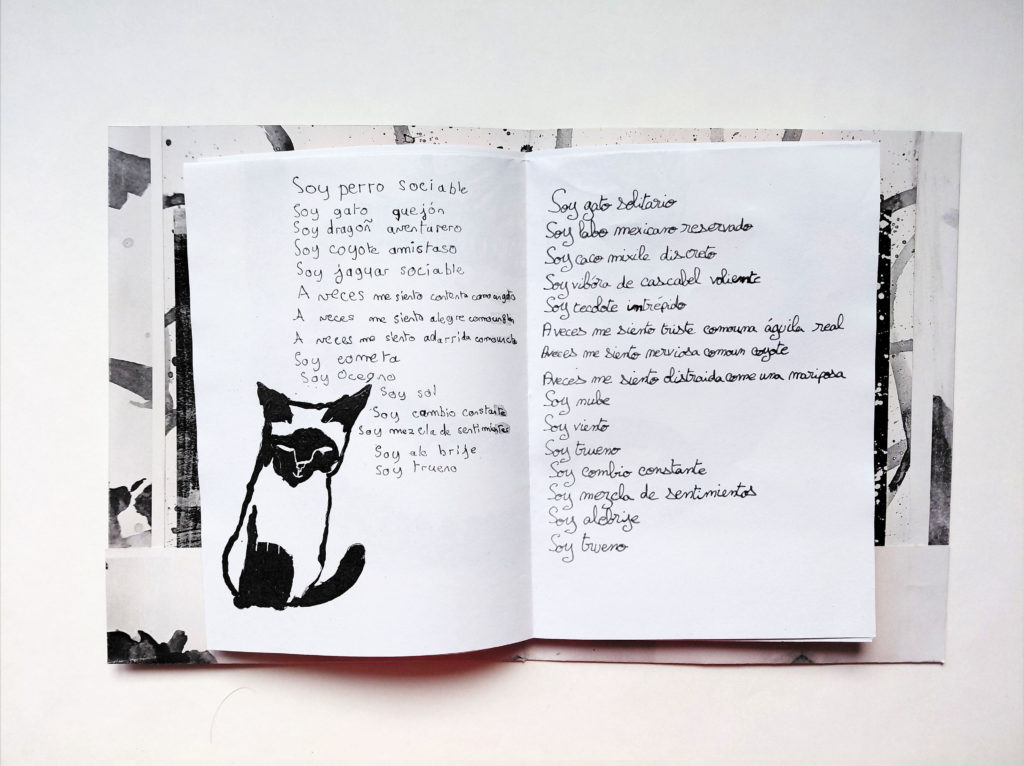 Soy perro sociable
Soy gato quejón
Soy dragoñ aventurero
Soy coyote amistaso
Soy jaguar sociable
A veces me siento contenta como un gato
A veces me siento alegre como un
A veces me siento adarrida como un
Soy cometa
Soy Ocegno
Soy sol
Soy cambio constante
Soy mezcla de sentimientos
Soy ale brije
Soy trueno
Soy gato solitario
Soy labo mexicano reservado
Soy caco mixile discreto
Soy vibóra de cascabel valiente
Soy tecolote intrépido
A veces me siento triste como una águila real
A veces me siento nerviosa como un coyote
A veces me siento distraida come una mariposa
Soy nube
Soy viento
Soy trueno
Soy combio constante
Soy mezcla de sentimientos
Soy alebrije
Soy trueno